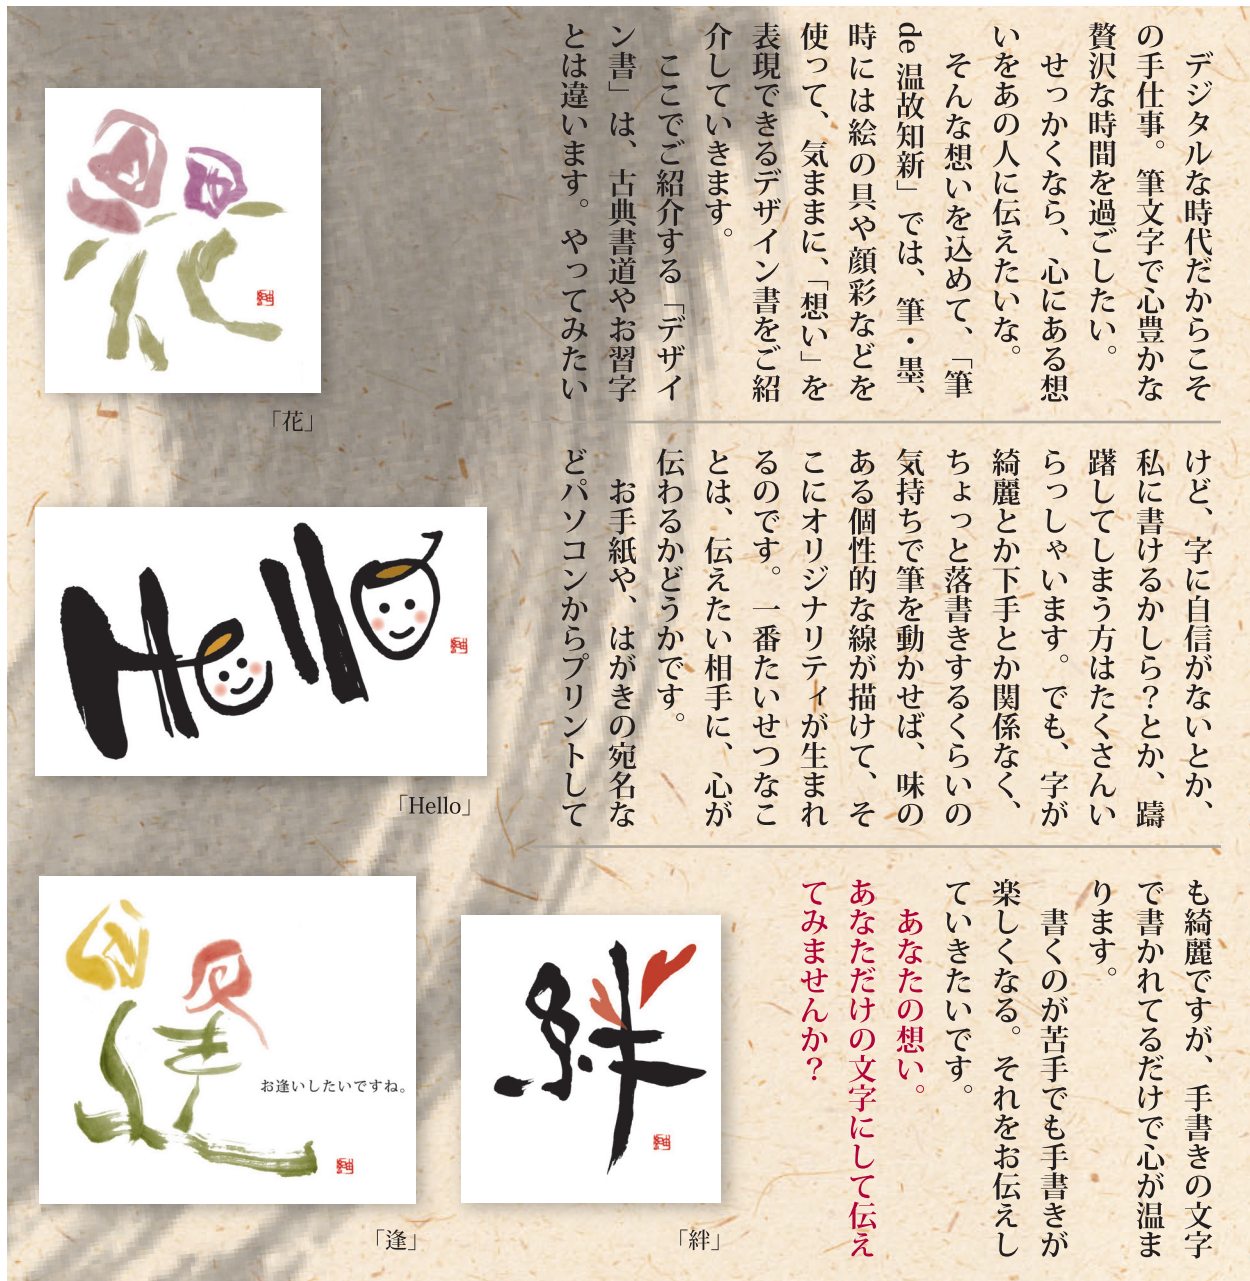 デジタルな時代だからこそ
の手仕事。筆文字で心豊かな
贅沢な時間を過ごしたい。
せっかくなら、心にある想
いをあの人に伝えたいな。
そんな想いを込めて、「筆
de 温故知新」では、筆・墨、
時には絵の具や顔彩などを
使って、気ままに、「想い」を
表現できるデザイン書をご紹
介していきます。
ここでご紹介する「デザイ
ン書」は、古典書道やお習字
とは違います。やってみたい
けど、字に自信がないとか、
私に書けるかしら？とか、躊
躇してしまう方はたくさんい
らっしゃいます。でも、字が
綺麗とか下手とか関係なく、
ちょっと落書きするくらいの
気持ちで筆を動かせば、味の
ある個性的な線が描けて、そ
こにオリジナリティが生まれ
るのです。一番たいせつなこ
とは、伝えたい相手に、心が
伝わるかどうかです。
お手紙や、はがきの宛名な
どパソコンからプリントして
も綺麗ですが、手書きの文字
で書かれてるだけで心が温ま
ります。
書くのが苦手でも手書きが
楽しくなる。それをお伝えし
ていきたいです。
あなたの想い。
あなただけの文字にして伝え
てみませんか？
花
「花」
Hello
「Hello」
逢
お逢いしたいですね。
「逢」
絆
「絆」